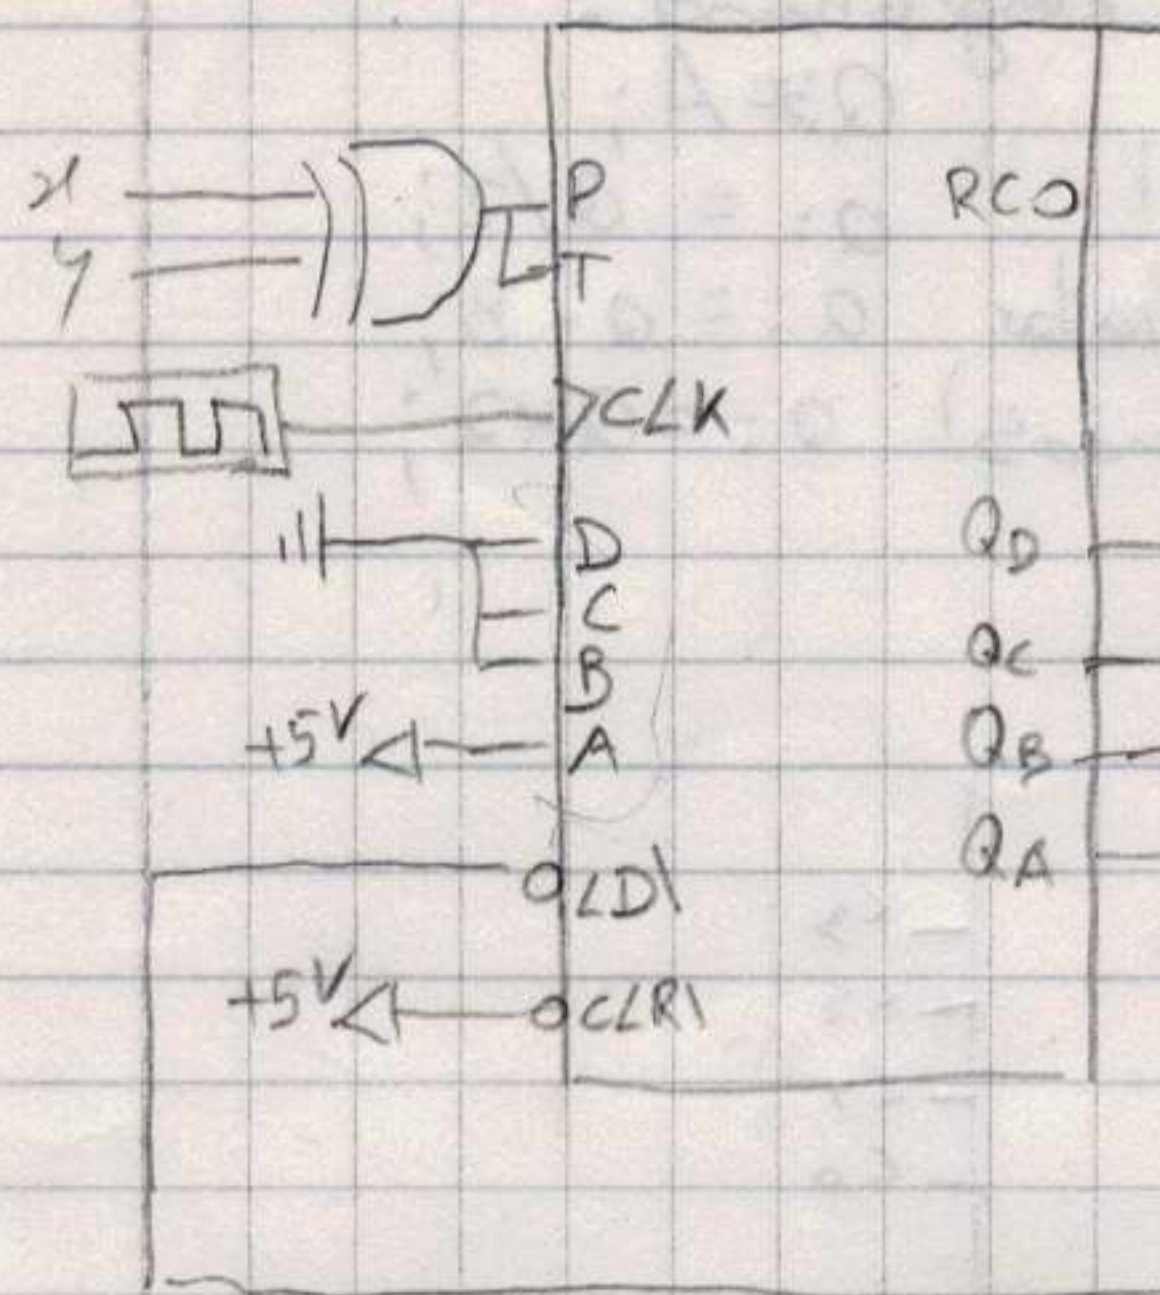 x
y
P
T
RCO
CLK
D
C
B
A
+5V
QD
QC
QB
QA
LD\
+5V
CLR\